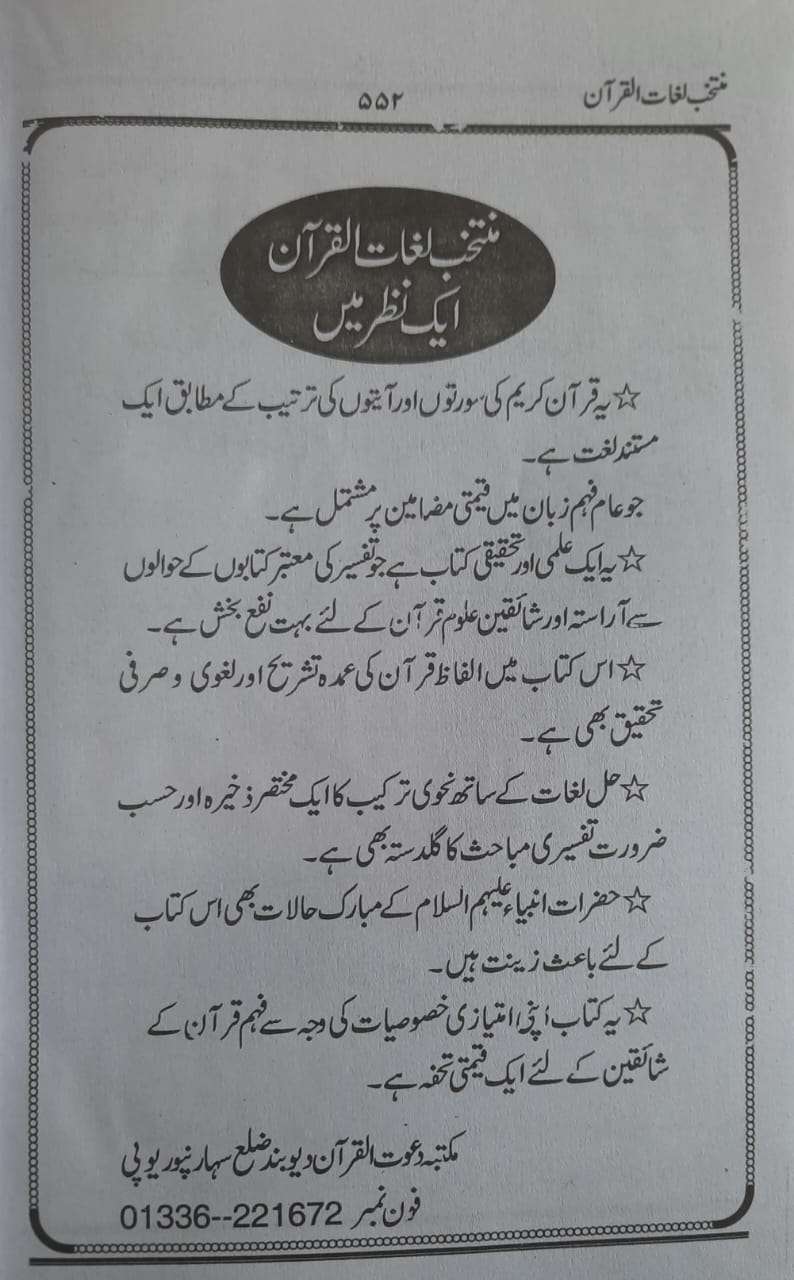 منتخب لغات القرآن
۵۵۲
منتخب لغات القرآن
ایک نظر میں
☆ یہ قرآن کریم کی سورتوں اور آیتوں کی ترتیب کے مطابق ایک
مستند لغت ہے۔
جو عام فہم زبان میں قیمتی مضامین پر مشتمل ہے۔
☆ یہ ایک علمی اور تحقیقی کتاب ہے جو تفسیر کی معتبر کتابوں کے حوالوں
سے آراستہ اور شائقین علوم قرآن کے لئے بہت نفع بخش ہے۔
☆ اس کتاب میں الفاظ قرآن کی عمدہ تشریح اور لغوی و صرفی
تحقیق بھی ہے۔
☆ حل لغات کے ساتھ نحوی ترکیب کا ایک مختصر ذخیرہ اور حسب
ضرورت تفسیری مباحث کا گلدستہ بھی ہے۔
☆ حضرات انبیاء علیہم السلام کے مبارک حالات بھی اس کتاب
کے لئے باعث زینت ہیں۔
☆ یہ کتاب اپنی امتیازی خصوصیات کی وجہ سے فہم قرآن کے
شائقین کے لئے ایک قیمتی تحفہ ہے۔
مکتبہ دعوت القرآن دیوبند ضلع سہارنپور یوپی
فون نمبر 01336--221672